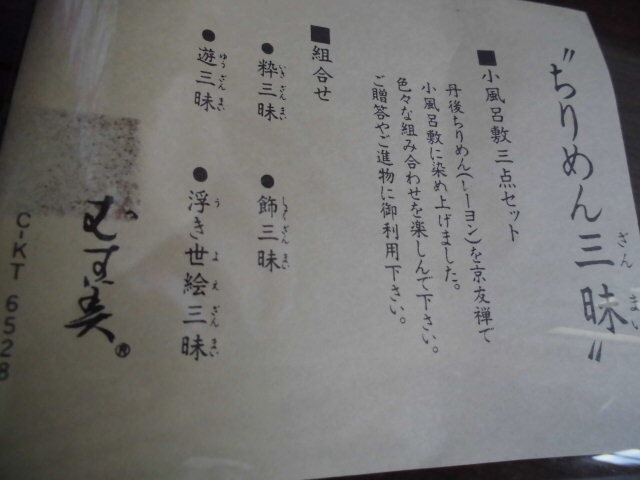 "ちりめん三昧"
ざんまい
■小風呂敷三点セット
丹後ちりめん(レーヨン)を京友禅で
小風呂敷に染め上げました。
色々な組み合わせを楽しんで下さい。
ご贈答やご進物に御利用下さい。
■組合せ
●粋三昧
いきざんまい
●飾三昧
しょくざんまい
●遊三昧
ゆうざんまい
●浮き世絵三昧
うよえざんまい
むす美®
C-KT 6528